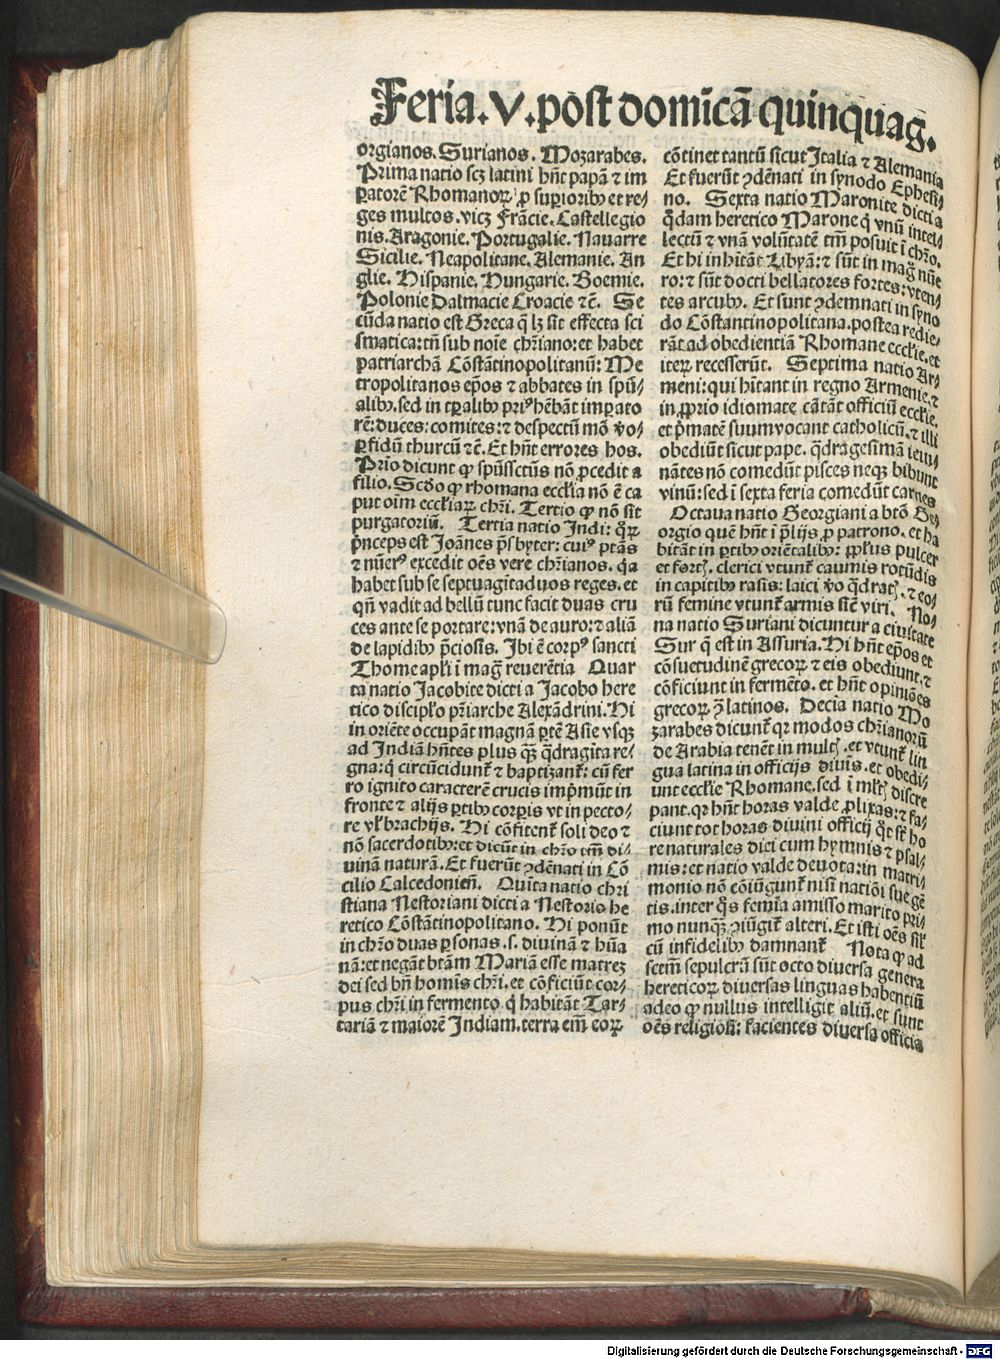 Feria.V.post domīcā quinquag.
orgianos. Surianos. Mozarabes.
Prima natio scꝫ latini hn̄t papā ⁊ im
ꝑatorē Rhomanoꝝ ꝓ suꝑioribꝰ et re⸗
ges multos. vicꝫ Frācie. Castellegio
nis. Aragonie. Portugalie. Nauarre
Sicilie. Neapolitane. Alemanie. An
glie. Hispanie. Hungarie. Boemie.
Polonie Dalmacie Croacie ⁊c̄. Se
cūda natio est Greca q̄ lꝫ sit effecta sci
smatica: tn̄ sub noīe chr̄iano: et habet
patriarchā Cōstātinopolitanū: Me
tropolitanos ep̄os ⁊ abbates in spū⸗
alibꝰ. sed in tꝑalibꝰ priꝰ hēbāt imꝑato
rē: duces: comites: ⁊ despectū mō ꝟo⸗
ꝑfidū thurcū ⁊c̄. Et hn̄t errores hos.
Prīo dicunt ꝙ spūssctūs nō ꝓcedit a
filio. Scd̄o ꝙ rhomana eccłia nō ē ca
put oīm eccłiaꝝ chr̄i. Tertio ꝙ nō sit
purgatoriū. Tertia natio Indi: q̊ꝝ
p̄nceps est Joānes p̄sbyter: cuiꝰ ptās
⁊ nūerꝰ excedit oēs vere chr̄ianos. q̄a
habet sub se septuagītaduos reges. et
qn̄ vadit ad bellū tunc facit duas cru
ces ante se portare: vnā de auro: ⁊ aliā
de lapidibꝰ p̄ciosis. Ibi ē corpꝰ sancti
Thome apłi ī maḡ reuerētia Quar
ta natio Jacobite dicti a Jacobo here
tico discipło pr̄iarche Alexādrini. Hi
in oriēte occupāt magnā ꝑtē Asie vsqꝫ
ad Indiā hn̄tes plus q̄ꝫ q̄dragīta re⸗
gna: q̇ circūcidunt̉ ⁊ baptizant̉: cū fer
ro ignito caracterē crucis imp̄mūt in
fronte ⁊ alijs ꝑtibꝰ corꝑis vt in pecto⸗
re vł brachijs. Hi cōfitent̉ soli deo ⁊
nō sacerdotibꝰ: et dicūt in chr̄o tm̄ di⸗
uinā naturā. Et fuerūt ꝯdēnati in Cō
cilio Calcedonien̄. Quīta natio chri
stiana Nestoriani dicti a Nestorio he
retico Cōstātinopolitano. Hi ponūt
in chr̄o duas ꝑsonas. s. diuinā ⁊ hūa
nā: et negāt btām Mariā esse matreꝫ
dei sed bn̄ homīs chr̄i. et cōficiūt cor⸗
pus chr̄i in fermento q̇ habitāt Tar⸗
tariā ⁊ maiorē Indiam. terra em̄ eoꝝ
cōtinet tantū sicut Italia ⁊ Alemania
Et fuerūt ꝯdēnati in synodo Ephesi⸗
no. Sexta natio Maronite dicti a
q̊dam heretico Marone q̇ vnū intel⸗
lectū ⁊ vnā volūtatē tm̄ posuit ī chr̄o.
Et hi inhītāt Libyā: ⁊ sūt in mag̊ nūe
ro: ⁊ sūt docti bellatores fortes: vten⸗
tes arcubꝰ. Et sunt ꝯdemnati in syno
do Cōstantinopolitana. postea redie⸗
rāt ad obedientiā Rhomane eccłie. et
iteꝝ recesserūt. Septima natio Ar⸗
meni: qui hītant in regno Armenie. ⁊
in ꝓprio idiomate cātāt officiū eccłie.
et p̄matē suum vocant catholicū. ⁊ illi
obediūt sicut pape. q̄dragesimā ieiu⸗
nātes nō comedūt pisces neqꝫ bibunt
vinū: sed ī sexta feria comedūt carnes
Octaua natio Georgiani a btō Ge⸗
orgio quē hn̄t ī p̄lijs ꝓ patrono. et ha
bitāt in ꝑtibꝰ oriētalibꝰ: ꝓplus pulcer
et fortꝭ. clerici vtunt̉ caumis rotūdis
in capitibꝰ rasis: laici ꝟo q̄dratꝭ. ⁊ eo⸗
rū femine vtunt̉ armis sicē viri. No⸗
na natio Suriani dicuntur a ciuitate
Sur q̄ est in Assuria. Hi hn̄t ep̄os et
cōsuetudinē grecoꝝ ⁊ eis obediunt. ⁊
cōficiunt in fermēto. et hn̄t opiniōes
grecoꝝ ꝯ̄ latinos. Decīa natio Mo
zarabes dicunt̉ qꝛ modos chr̄ianorū
de Arabia tenēt in multꝭ. et vtunt̉ lin
gua latina in officijs diuīs. et obedi⸗
unt eccłie Rhomane. sed ī mł̄tꝭ discre
pant. qꝛ hn̄t horas valde ꝓlixas: ⁊ fa⸗
ciunt tot horas diuini officij q̊t st̄ ho
re naturales diei cum hymnis ⁊ psal⸗
mis: et natio valde deuota: in matri⸗
monio nō cōiūgunt̉ nisi natiōi sue gē
tis. inter q̊s femīa amisso marito pri⸗
mo nunqꝫ̄ ꝯiūgit̉ alteri. Et isti oēs sił
cū infidelibꝰ damnant̉ Nota ꝙ ad
sctm̄ sepulcrū sūt octo diuersa genera
hereticoꝝ diuersas linguas habentiū
adeo ꝙ nullus intelligit aliū. et sunt
oēs religiosi: facientes diuersa officia
Digitalisierung gefördert durch die Deutsche Forschungsgemeinschaft - DFG